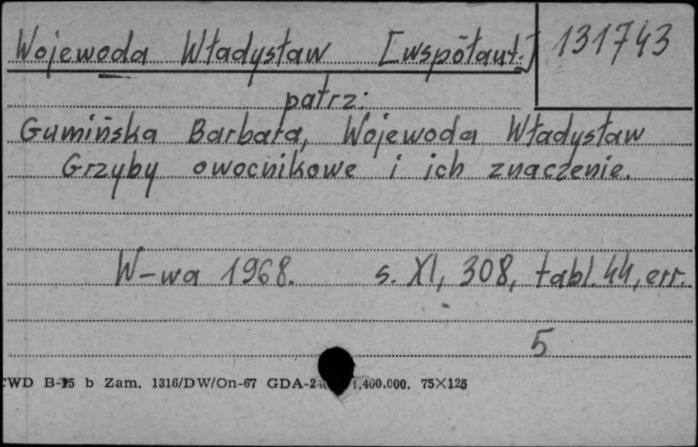 Wojewoda Władysław [współaut.] 131743
patrz:
Gumińska Barbara, Wojewoda Władysław
Grzyby owocnikowe i ich znaczenie.
W-wa 1968. s. XI, 308, tabl. 44, err.
5
CWD B-15 b Zam. 1316/DW/On-67 GDA- 1.400.000. 75×125